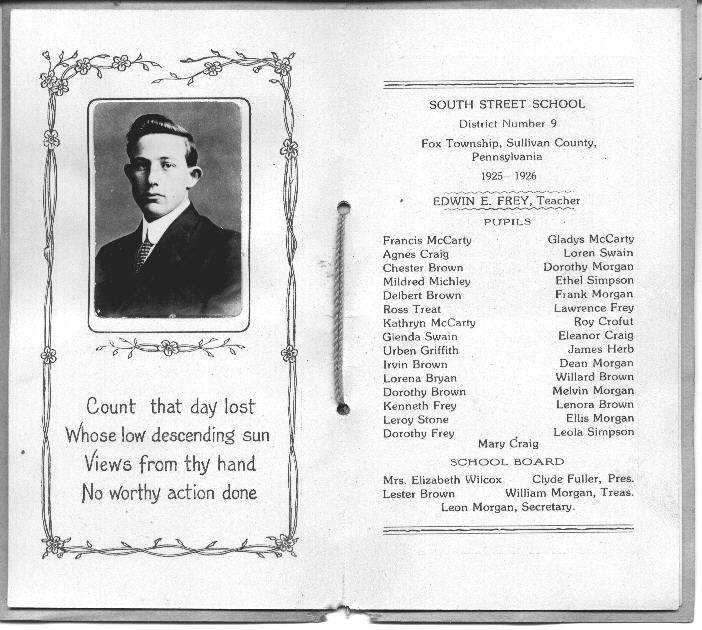 Count that day lost
Whose low descending sun
Views from thy hand
No worthy action done
SOUTH STREET SCHOOL
District Number 9
Fox Township, Sullivan County,
Pennsylvania
1925–1926
EDWIN E. FREY, Teacher
PUPILS
Francis McCarty Gladys McCarty
Agnes Craig Loren Swain
Chester Brown Dorothy Morgan
Mildred Michley Ethel Simpson
Delbert Brown Frank Morgan
Ross Treat Lawrence Frey
Kathryn McCarty Roy Crofut
Glenda Swain Eleanor Craig
Urben Griffith James Herb
Irvin Brown Dean Morgan
Lorena Bryan Willard Brown
Dorothy Brown Melvin Morgan
Kenneth Frey Lenora Brown
Leroy Stone Ellis Morgan
Dorothy Frey Leola Simpson
Mary Craig
SCHOOL BOARD
Mrs. Elizabeth Wilcox Clyde Fuller, Pres.
Lester Brown William Morgan, Treas.
Leon Morgan, Secretary.